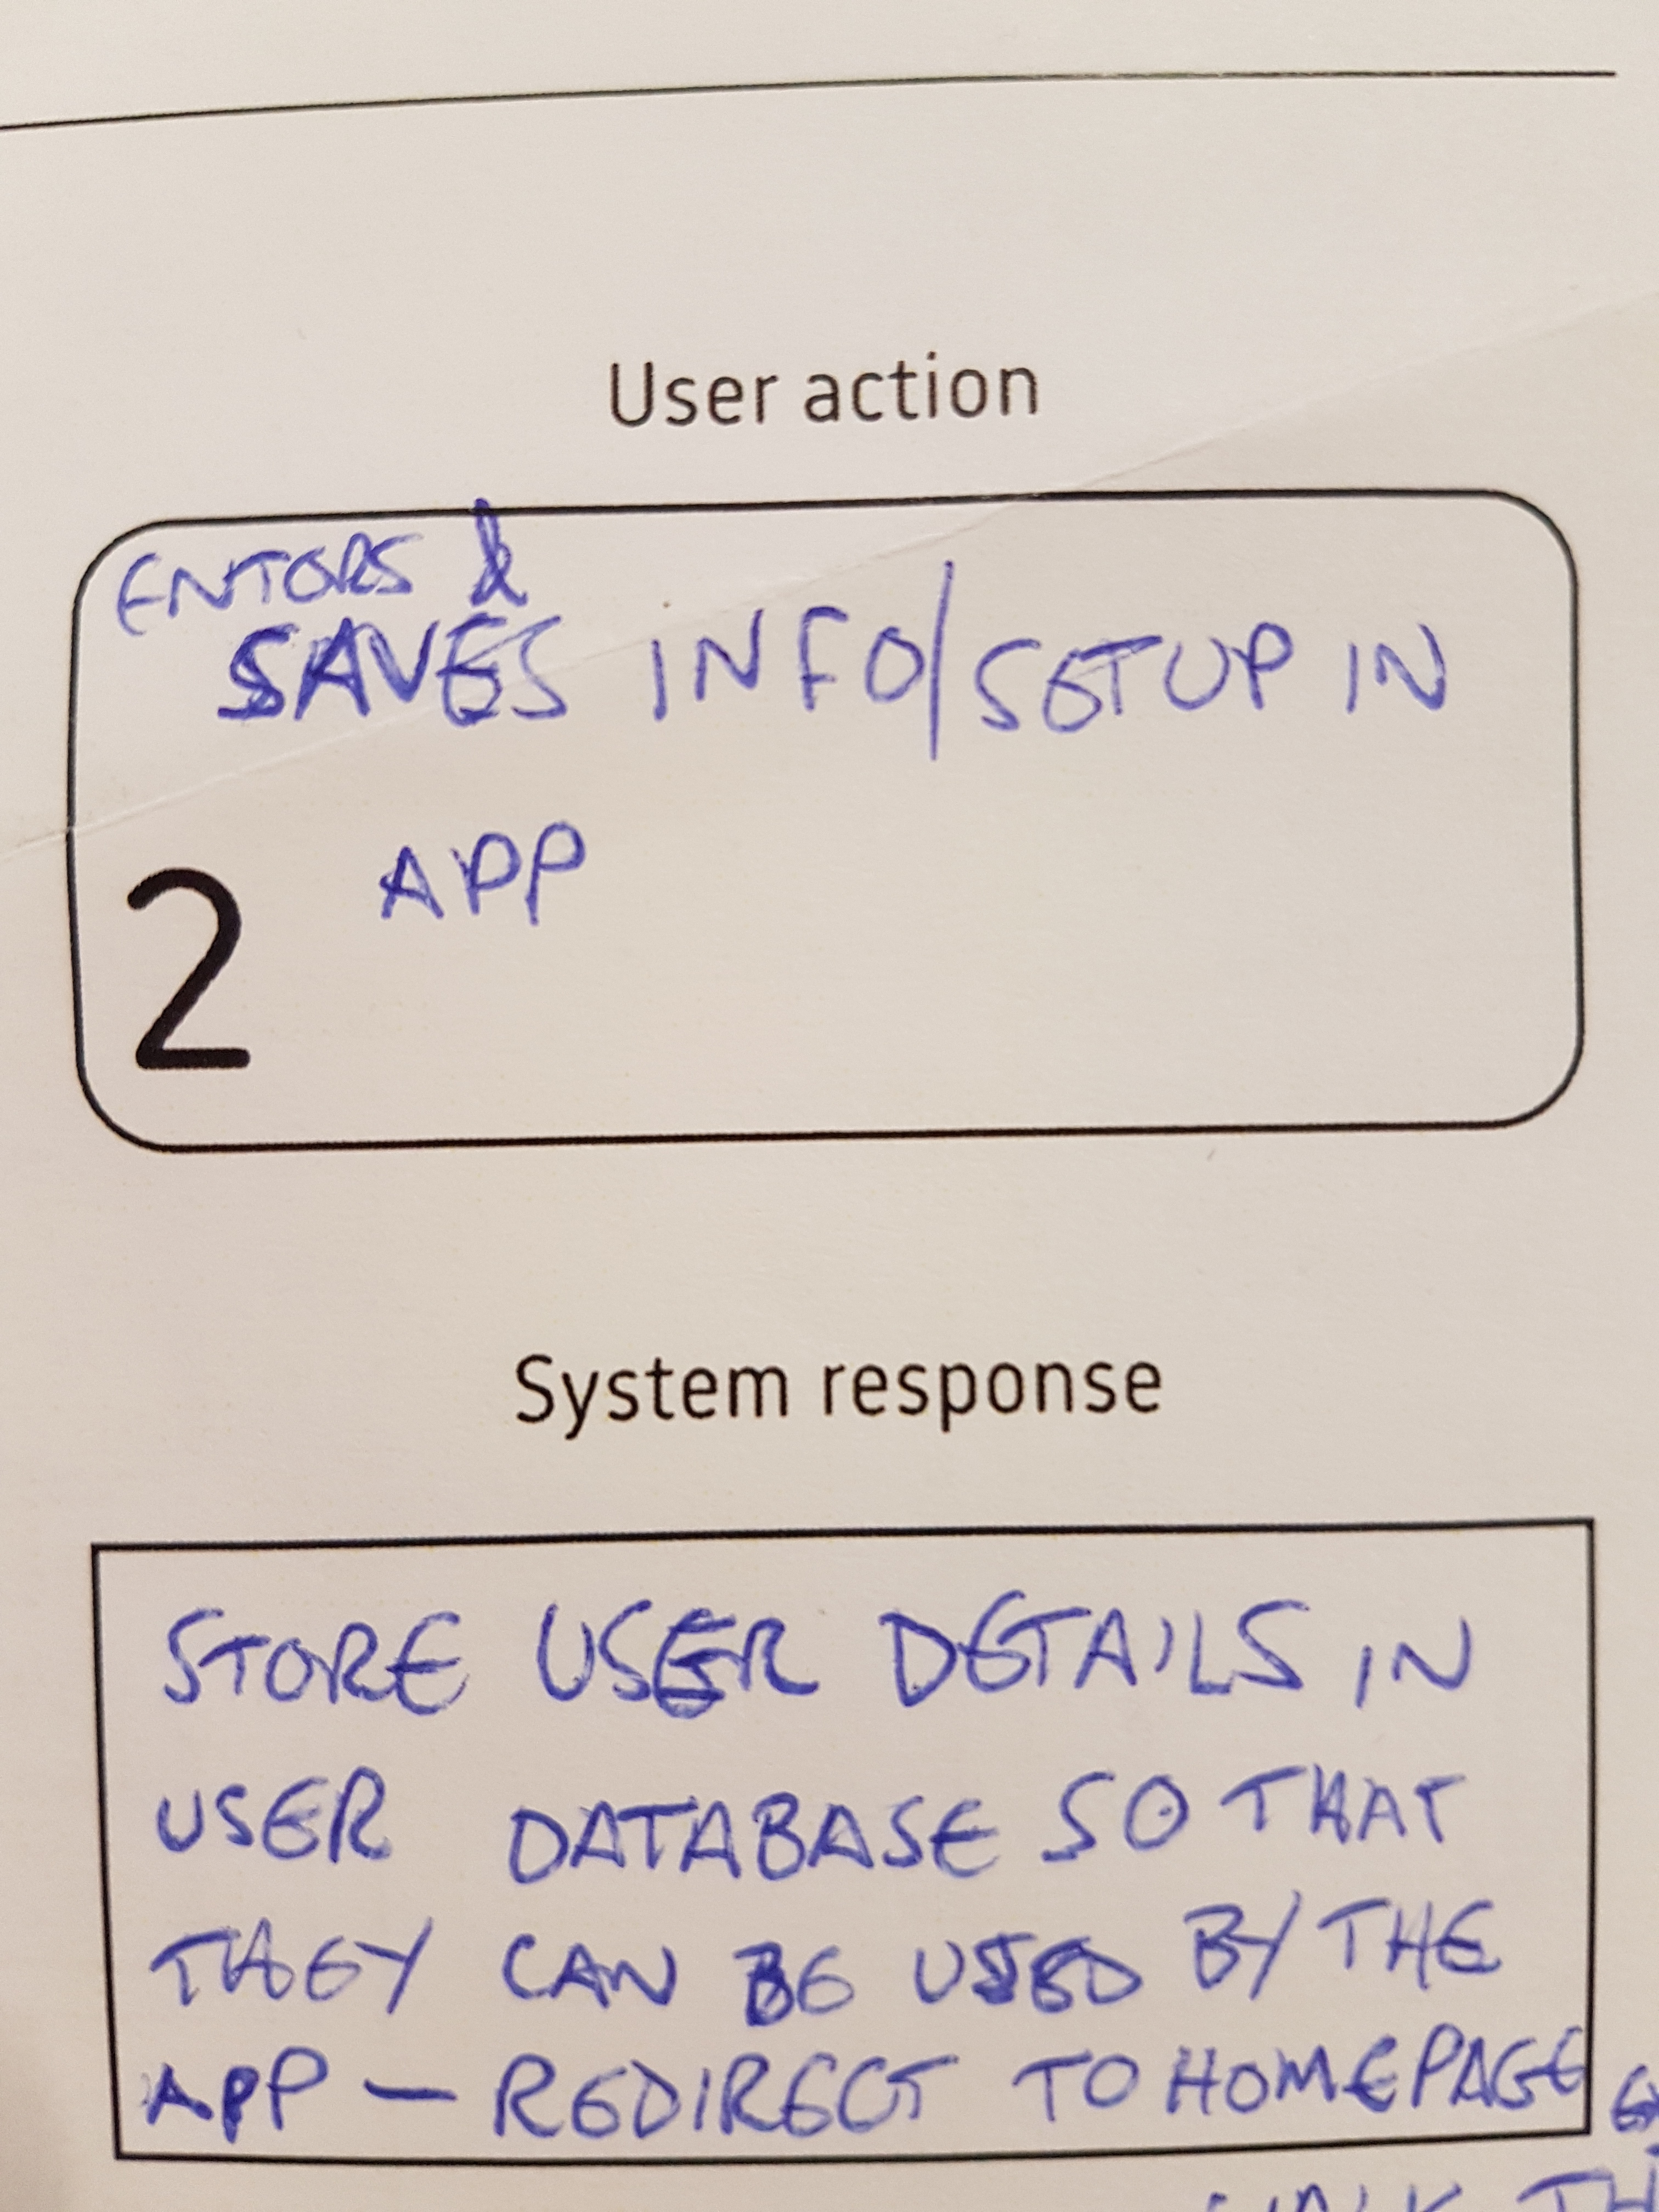 User action
ENTERS &
SAVES INFO/SETUP IN
2 APP
System response
STORE USER DETAILS IN
USER DATABASE SO THAT
THEY CAN BE USED BY THE
APP — REDIRECT TO HOMEPAGE